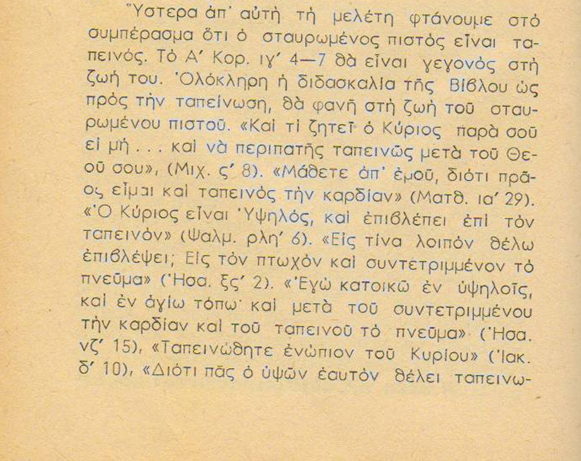 Ὕστερα ἀπ' αὐτὴ τὴ μελέτη φτάνουμε στό
συμπέρασμα ὅτι ὁ σταυρωμένος πιστός εἶναι τα-
πεινός. Τὸ Α' Κορ. ιγ' 4—7 θὰ εἶναι γεγονός στὴ
ζωή του. Ὁλόκληρη ἡ διδασκαλία τῆς Βίβλου ὡς
πρὸς τὴν ταπείνωση, θὰ φανῆ στὴ ζωὴ τοῦ σταυ-
ρωμένου πιστοῦ. «Καὶ τί ζητεῖ ὁ Κύριος παρὰ σοῦ
εἰ μὴ . . . καὶ νὰ περιπατῆς ταπεινῶς μετὰ τοῦ Θε-
οῦ σου», (Μιχ. ς' 8). «Μάθετε ἀπ' ἐμοῦ, διότι πρᾶ-
ος εἶμαι καὶ ταπεινὸς τὴν καρδίαν» (Ματθ. ια' 29).
«Ὁ Κύριος εἶναι Ὑψηλός, καὶ ἐπιβλέπει ἐπὶ τὸν
ταπεινὸν» (Ψαλμ. ρλη' 6). «Εἰς τίνα λοιπὸν θέλω
ἐπιβλέψει; Εἰς τὸν πτωχὸν καὶ συντετριμμένον τὸ
πνεῦμα» (Ἠσα. ξς' 2). «Ἐγὼ κατοικῶ ἐν ὑψηλοῖς,
καὶ ἐν ἁγίω τόπω· καὶ μετὰ τοῦ συντετριμμένου
τὴν καρδίαν καὶ τοῦ ταπεινοῦ τὸ πνεῦμα» (Ἠσα.
νζ' 15), «Ταπεινώθητε ἐνώπιον τοῦ Κυρίου» (Ἰακ.
δ' 10), «Διότι πᾶς ὁ ὑψῶν ἑαυτὸν θέλει ταπεινω-